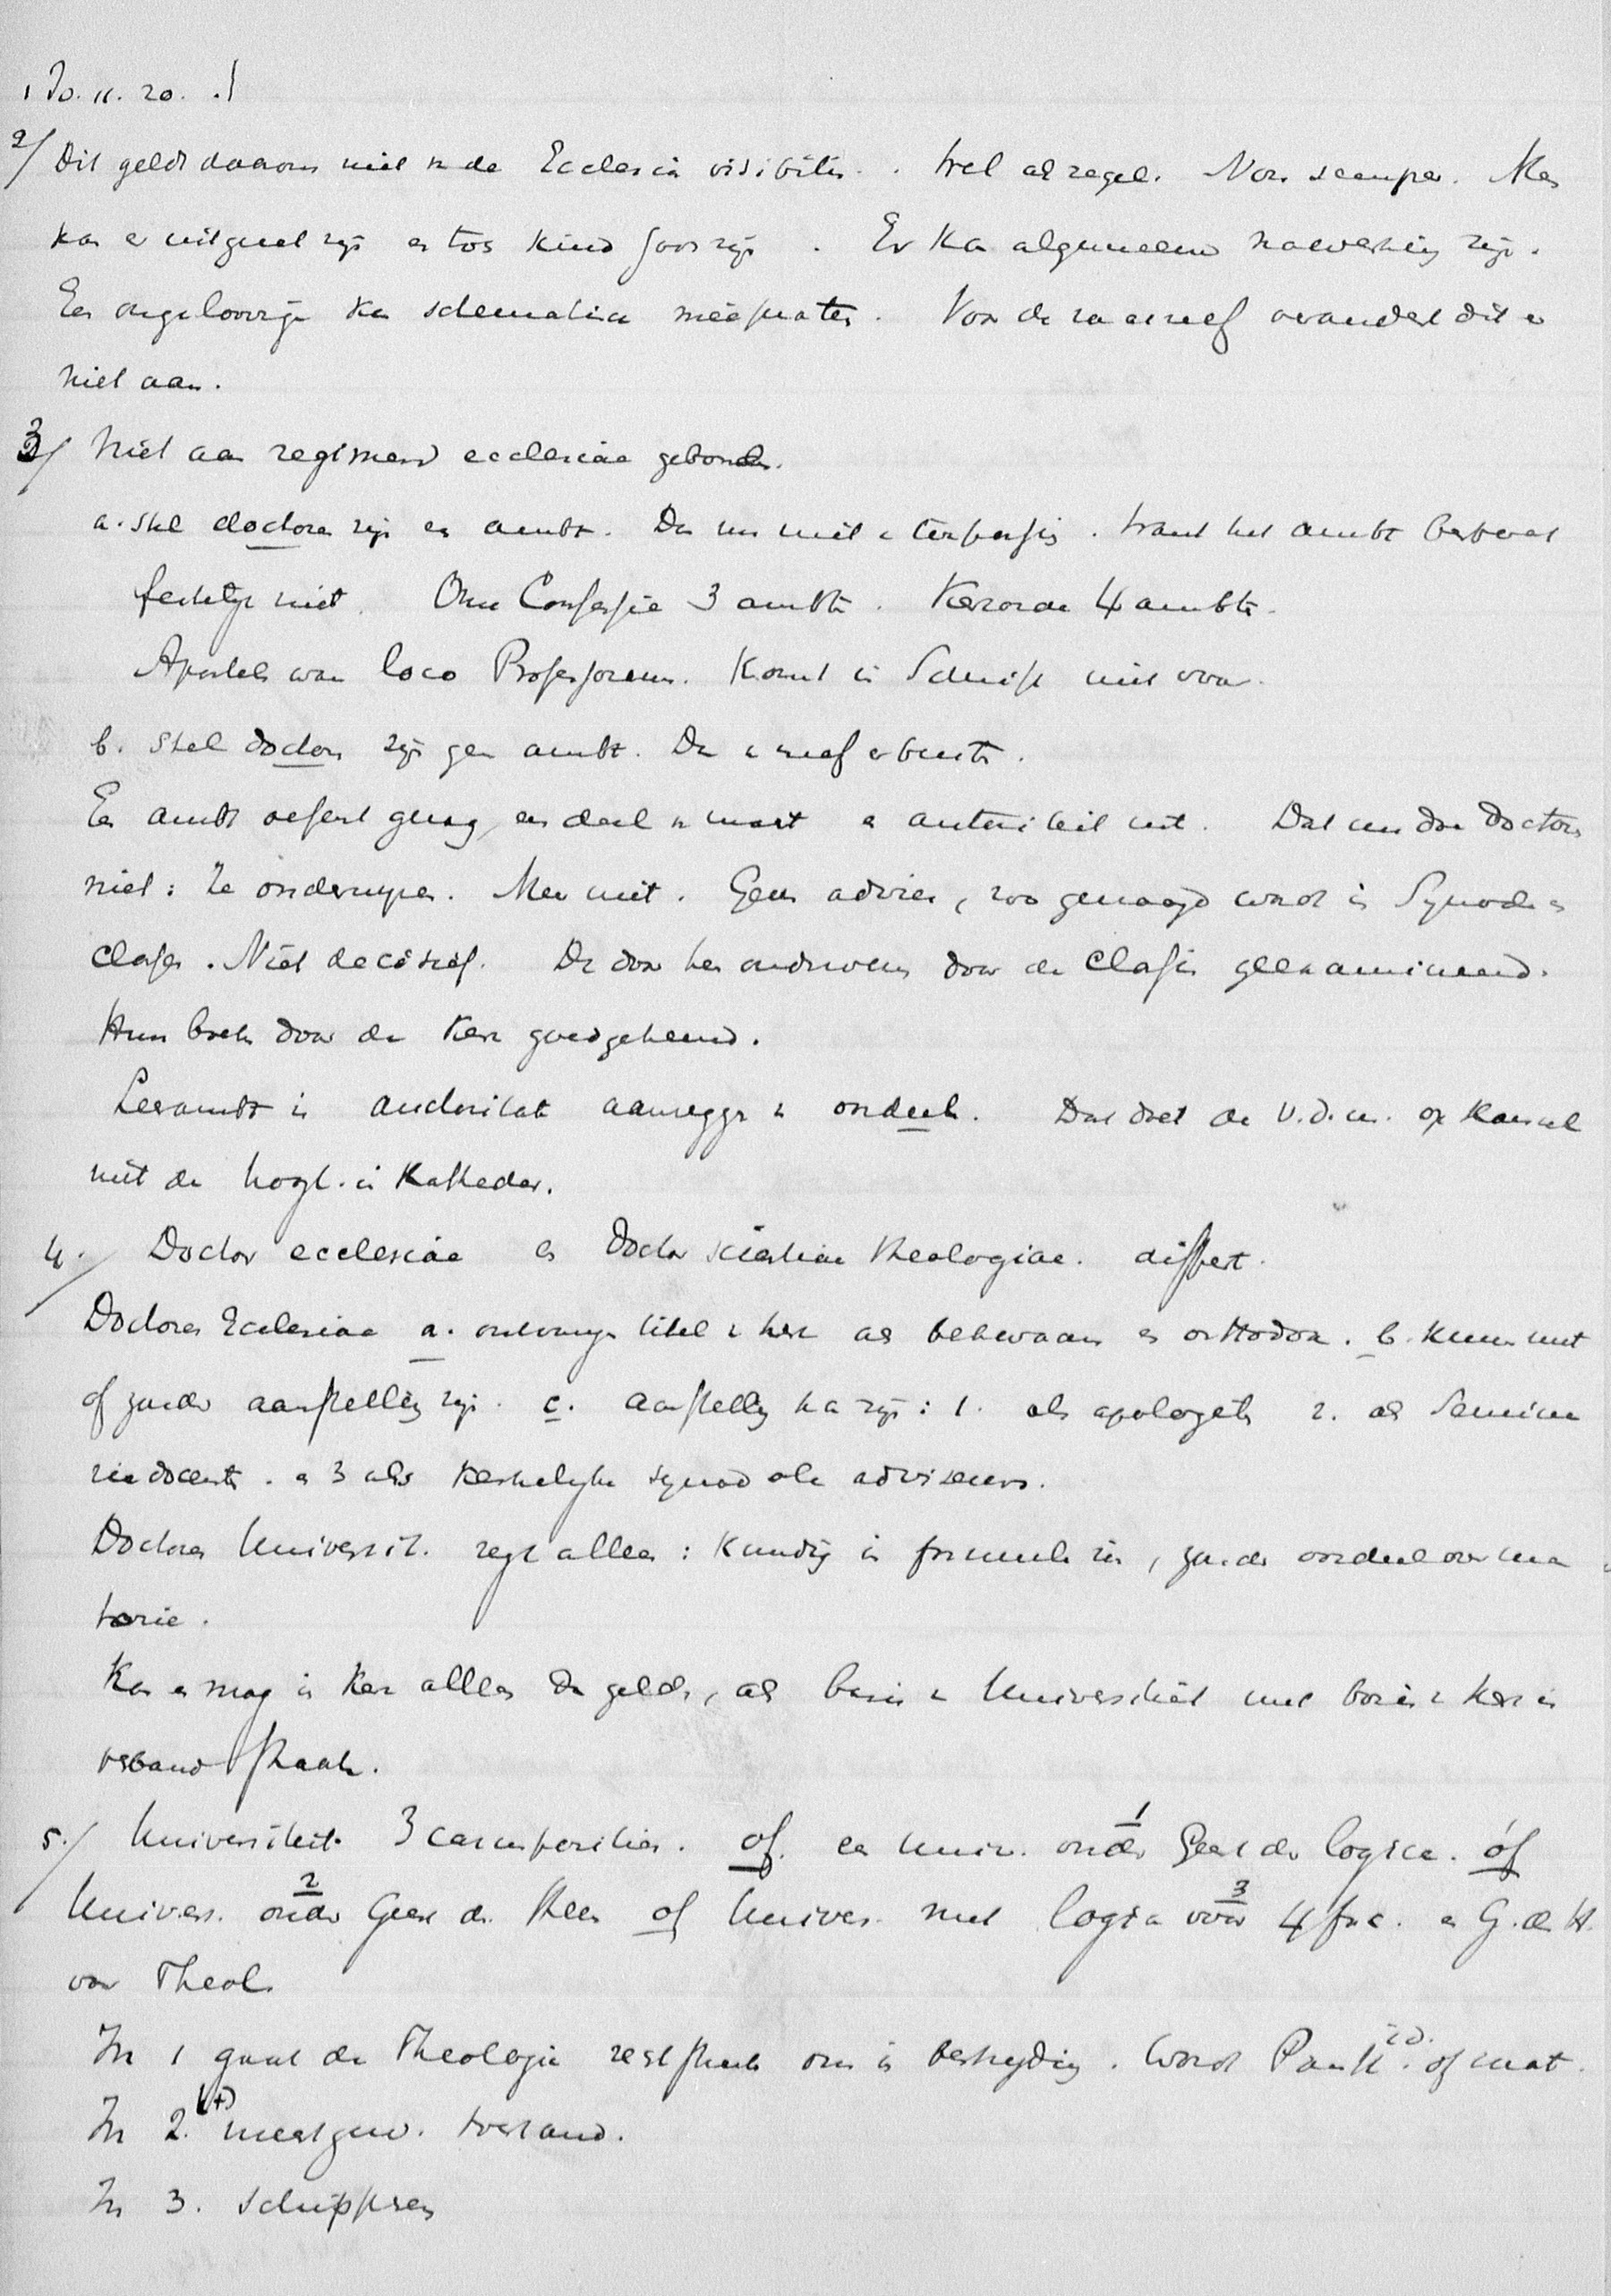 1 Jo. 11. 20. .)
2/ Dit geldt daarom niet v de Ecclesia visibilis. Wel als regel. Non semper. Men
kan er uitgaat zijn en tos kind Gods zijn. Er kan algemeene inwerking zijn.
Een ongeloovige kan schematice meepraten. Voor de zaak verandert dit er
niet aan.
3/ Niet aan regimen ecclesiae gebonden.
a. Stel doctoren zijn een ambt. Dan nu niet v toepassing. Want het ambt bestaat
feitelijk niet. Onze Confessie 3 ambten. Kerkorde 4 ambten.
Apostels waren loco Professorum. Komt in Schrift niet voor.
b. Stel doctoren zijn geen ambt. Dan v zelf er buiten.
Een ambt oefent gezag, een deel v macht en autoriteit uit. Dat nu doen doctoren
niet: Ze onderwijzen. Meer niet. Geven advies, zoo gevraagd wordt in Synode en
Classes. Niet decisief. De door hen onderwezen door de Classis geexamineerd.
Hun boek door de Kerk goedgekeurd.
Leerambt is auctoritate aanzeggen v oordeel. Dat doet de V.D.M. op kansel
niet de hoogl. in Katheder.
4./ Doctor ecclesiae en doctor scientiae theologiae. differt.
Doctores Ecclesiae a. ontvangen titel v kerk als bekwaam en orthodox. b. kunnen met
of zonder aanstelling zijn. c. aanstelling kan zijn: 1. als apologeten 2. als Semina
riedocenten. en 3 als Kerkelijke synodale adviseurs.
Doctores Universit. zegt alleen: Kundig in formeele zin, zonder oordeel over ma
terie.
Kan en mag in Kerk alleen dan gelden, als basis v Universiteit met basis v kerk in
verband staat.
5./ Universiteit. 3 campositie. of. een Univ. onder 1 Geest der logica. óf
Univers. onder 2 Geest der Theos of Univers. met logica voor 3 4 fac. en G. d H.
voor Theol.
In 1 gaat de Theologie rechtstreeks om in bestrijding. Wordt Panth. id. of mat.
In 2. (+) meestgew. toestand.
In 3. Schipperen